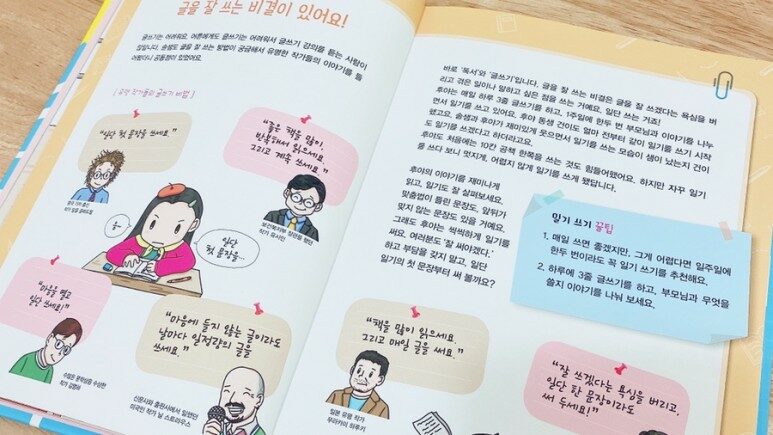 글을 잘 쓰는 비결이 있어요!
글쓰기는 어려워요. 어른에게도 글쓰기는 어려워서 글쓰기 강의를 듣는 사람이
많답니다. 손쌤도 글을 잘 쓰는 방법이 궁금해서 유명한 작가들의 이야기를 들
어봤더니 공통점이 있었어요.
[ 유명 작가들의 글쓰기 비법 ]
“일단 첫 문장을 쓰세요.”
“좋은 책을 많이,
반복해서 읽으세요.
그리고 계속 쓰세요.”
보건복지부 장관을 했던
작가 유시민
음~
일단
첫 문장을…
“마음을 열고
일단 쓰세요.”
작가 김영하
“마음에 들지 않는 글이라도
날마다 일정량의 글을
쓰세요.”
신문사와 출판사에서 일했던
미국인 작가 닐 스트라우스
바로 ‘독서’와 ‘글쓰기’입니다. 글을 잘 쓰는 비결은 글을 잘 쓰겠다는 욕심을 버
리고 겪은 일이나 말하고 싶은 점을 쓰는 거예요. 일단 쓰는 거죠!
후야는 매일 하루 3줄 글쓰기를 하고, 1주일에 한두 번 부모님과 이야기를 나누
면서 일기를 쓰고 있어요. 후야 동생 건이도 얼마 전부터 같이 일기를 쓰기 시작
했고요. 손쌤과 후야가 재미있게 웃으면서 일기를 쓰는 모습이 샘이 났는지 건이
도 일기를 쓰겠다고 하더라고요.
후야도 처음에는 10칸 공책 한쪽을 쓰는 것도 힘들어했어요. 하지만 자꾸 일기
를 쓰다 보니 멋지게, 어렵지 않게 일기를 쓰게 됐답니다.
후야의 이야기를 재미나게
읽고, 일기도 잘 살펴보세요.
맞춤법이 틀린 문장도, 앞뒤가
맞지 않는 문장도 있을 거예요.
그래도 후야는 씩씩하게 일기를
써요. 여러분도 ‘잘 써야겠다.’
하고 부담을 갖지 말고, 일단
일기의 첫 문장부터 써 볼까요?
일기 쓰기 꿀팁
1. 매일 쓰면 좋겠지만, 그게 어렵다면 일주일에
한두 번이라도 꼭 일기 쓰기를 추천해요.
2. 하루에 3줄 글쓰기를 하고, 부모님과 무엇을
쓸지 이야기를 나눠 보세요.
“책을 많이 읽으세요.
그리고 매일 글을 써요.”
일본 유명 작가
무라카미 하루키
“잘 쓰겠다는 욕심을 버리고,
일단 한 문장이라도
써 두세요!”